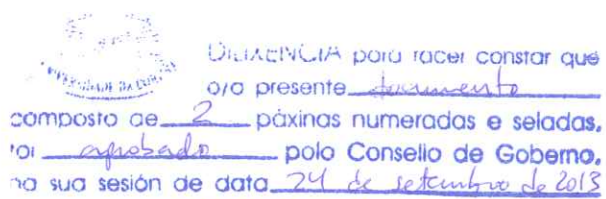 DILIXENCIA para facer constar que
o/a presente documento
composto de 2 páxinas numeradas e seladas,
foi aprobado polo Consello de Goberno,
na sua sesión de data 24 de setembro de 2013